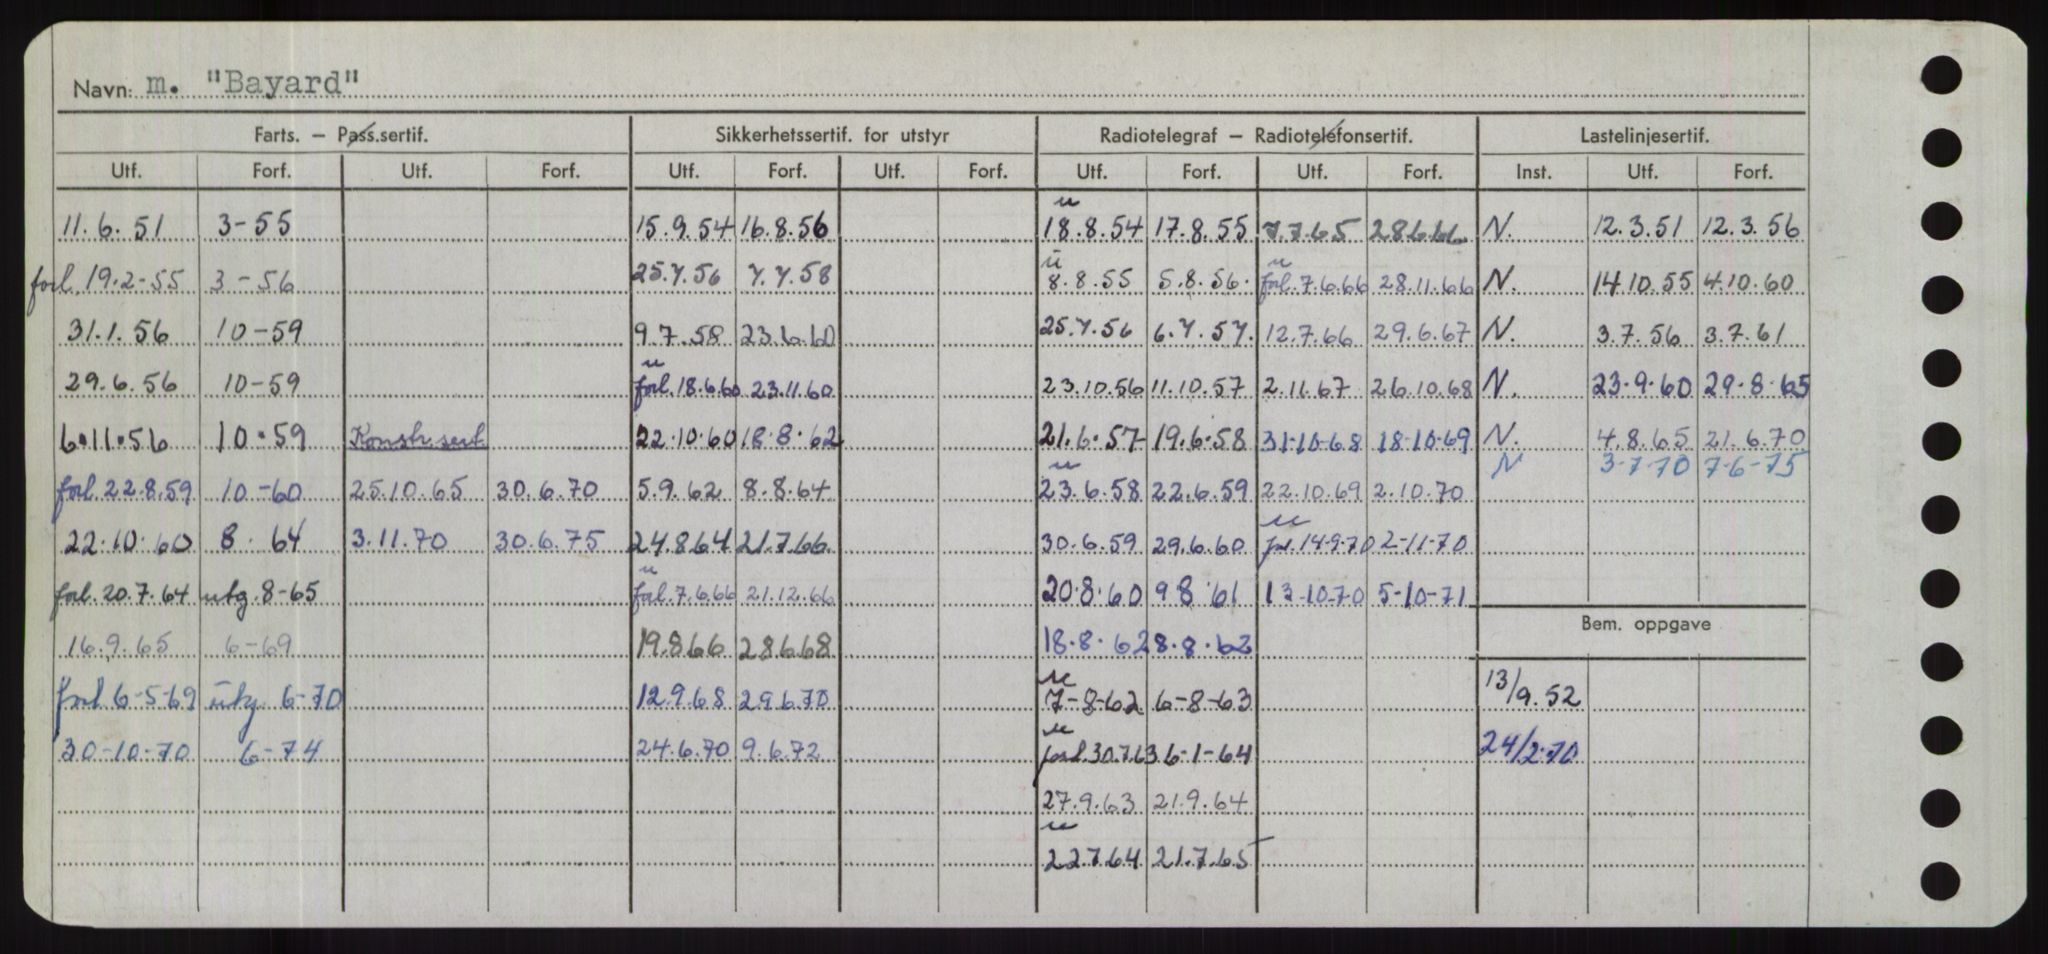 Navn: m. "Bayard"
Farts. – Pass.sertif. Sikkerhetssertif. for utstyr Radiotelegraf – Radiotelefonsertif. Lastelinjesertif.
Utf. Forf. Utf. Forf. Utf. Forf. Utf. Forf. Utf. Forf. Utf. Forf. Inst. Utf. Forf.
u
11.6.51 3-55 15.9.54 16.8.56 18.8.54 17.8.55 7.7.65 28.6.66 N. 12.3.51 12.3.56
u u
forl. 19.2-55 3-56 25.7.56 7.7.58 8.8.55 5.8.56. forl. 7.6.66 28.11.66 N. 14.10.55 4.10.60
31.1.56 10-59 9.7.58 23.6.60 25.7.56 6.7.57. 12.7.66 29.6.67 N. 3.7.56 3.7.61
u
29.6.56 10-59 forl. 18.6.60 23.11.60 23.10.56 11.10.57 2.11.67 26.10.68 N. 23.9.60 29.8.65
6.11.56 10.59 Konstr.sert. 22.10.60 18.8.62 21.6.57 19.6.58 31-10-68 18-10-69 N. 4.8.65 21.6.70
u N 3-7-70 7-6-75
forl. 22.8.59 10-60 25.10.65 30.6.70 5.9.62 8.8.64 23.6.58 22.6.59 22.10.69 2.10.70
u
22.10.60 8.64 3.11.70 30.6.75 24.8.64 21.7.66 30.6.59 29.6.60 forl. 14-9-70 2-11-70
u
forl. 20.7.64 utg. 8-65 forl. 7.6.66 21.12.66 20.8.60 9.8.61 13-10-70 5-10-71
Bem. oppgave
16.9.65 6-69 19.8.66 28.6.68 18.8.62 8.8.62
u
forl. 6-5-69 utg. 6-70 12.9.68 29.6.70 7-8-62 6-8-63 13/9.52
u
30-10-70 6-74 24.6.70 9.6.72 forl. 30.7.63 6-1-64 24/2-70
27.9.63 21.9.64
u
22.7.64 21.7.65